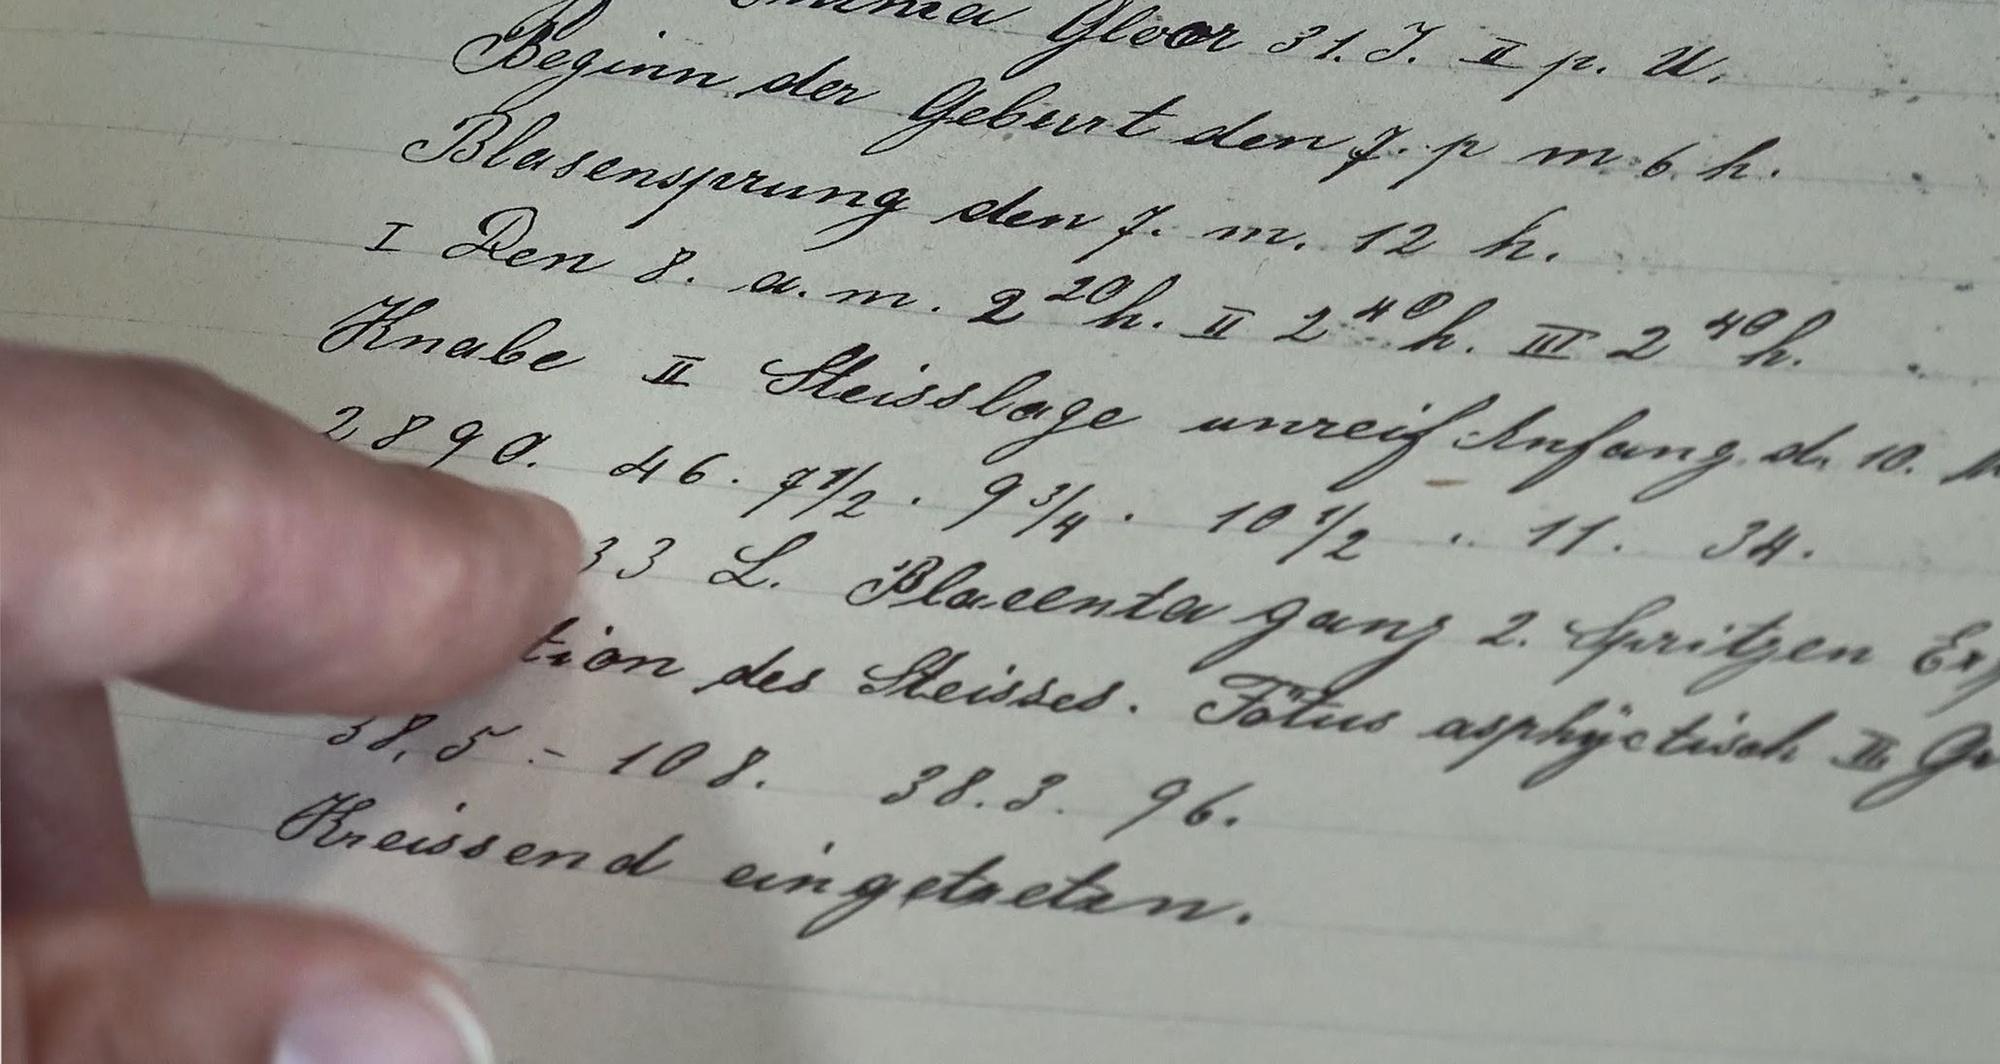 Gloor 31. J. II p. U.
Beginn der Geburt den 7. p m 6 h.
Blasensprung den 7. m. 12 h.
I Den 8. a. m. 2 20 h. II 2 40 h. III 2 40 h.
Knabe II Steisslage unreif Anfang d. 10.
2890. 46. 7 1/2. 9 3/4. 10 1/2. 11. 34.
33 L. Placenta ganz 2. Spritzen
tion des Steisses. Fötus asphyctisch II
38,5 - 108. 38.3. 96.
Kreissend eingetreten.